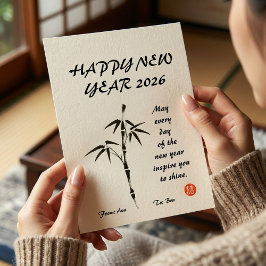 HAPPY NEW
YEAR 2026
May
every
day
of the
new year
inspire you
to shine.
From: Ann
To: Ben